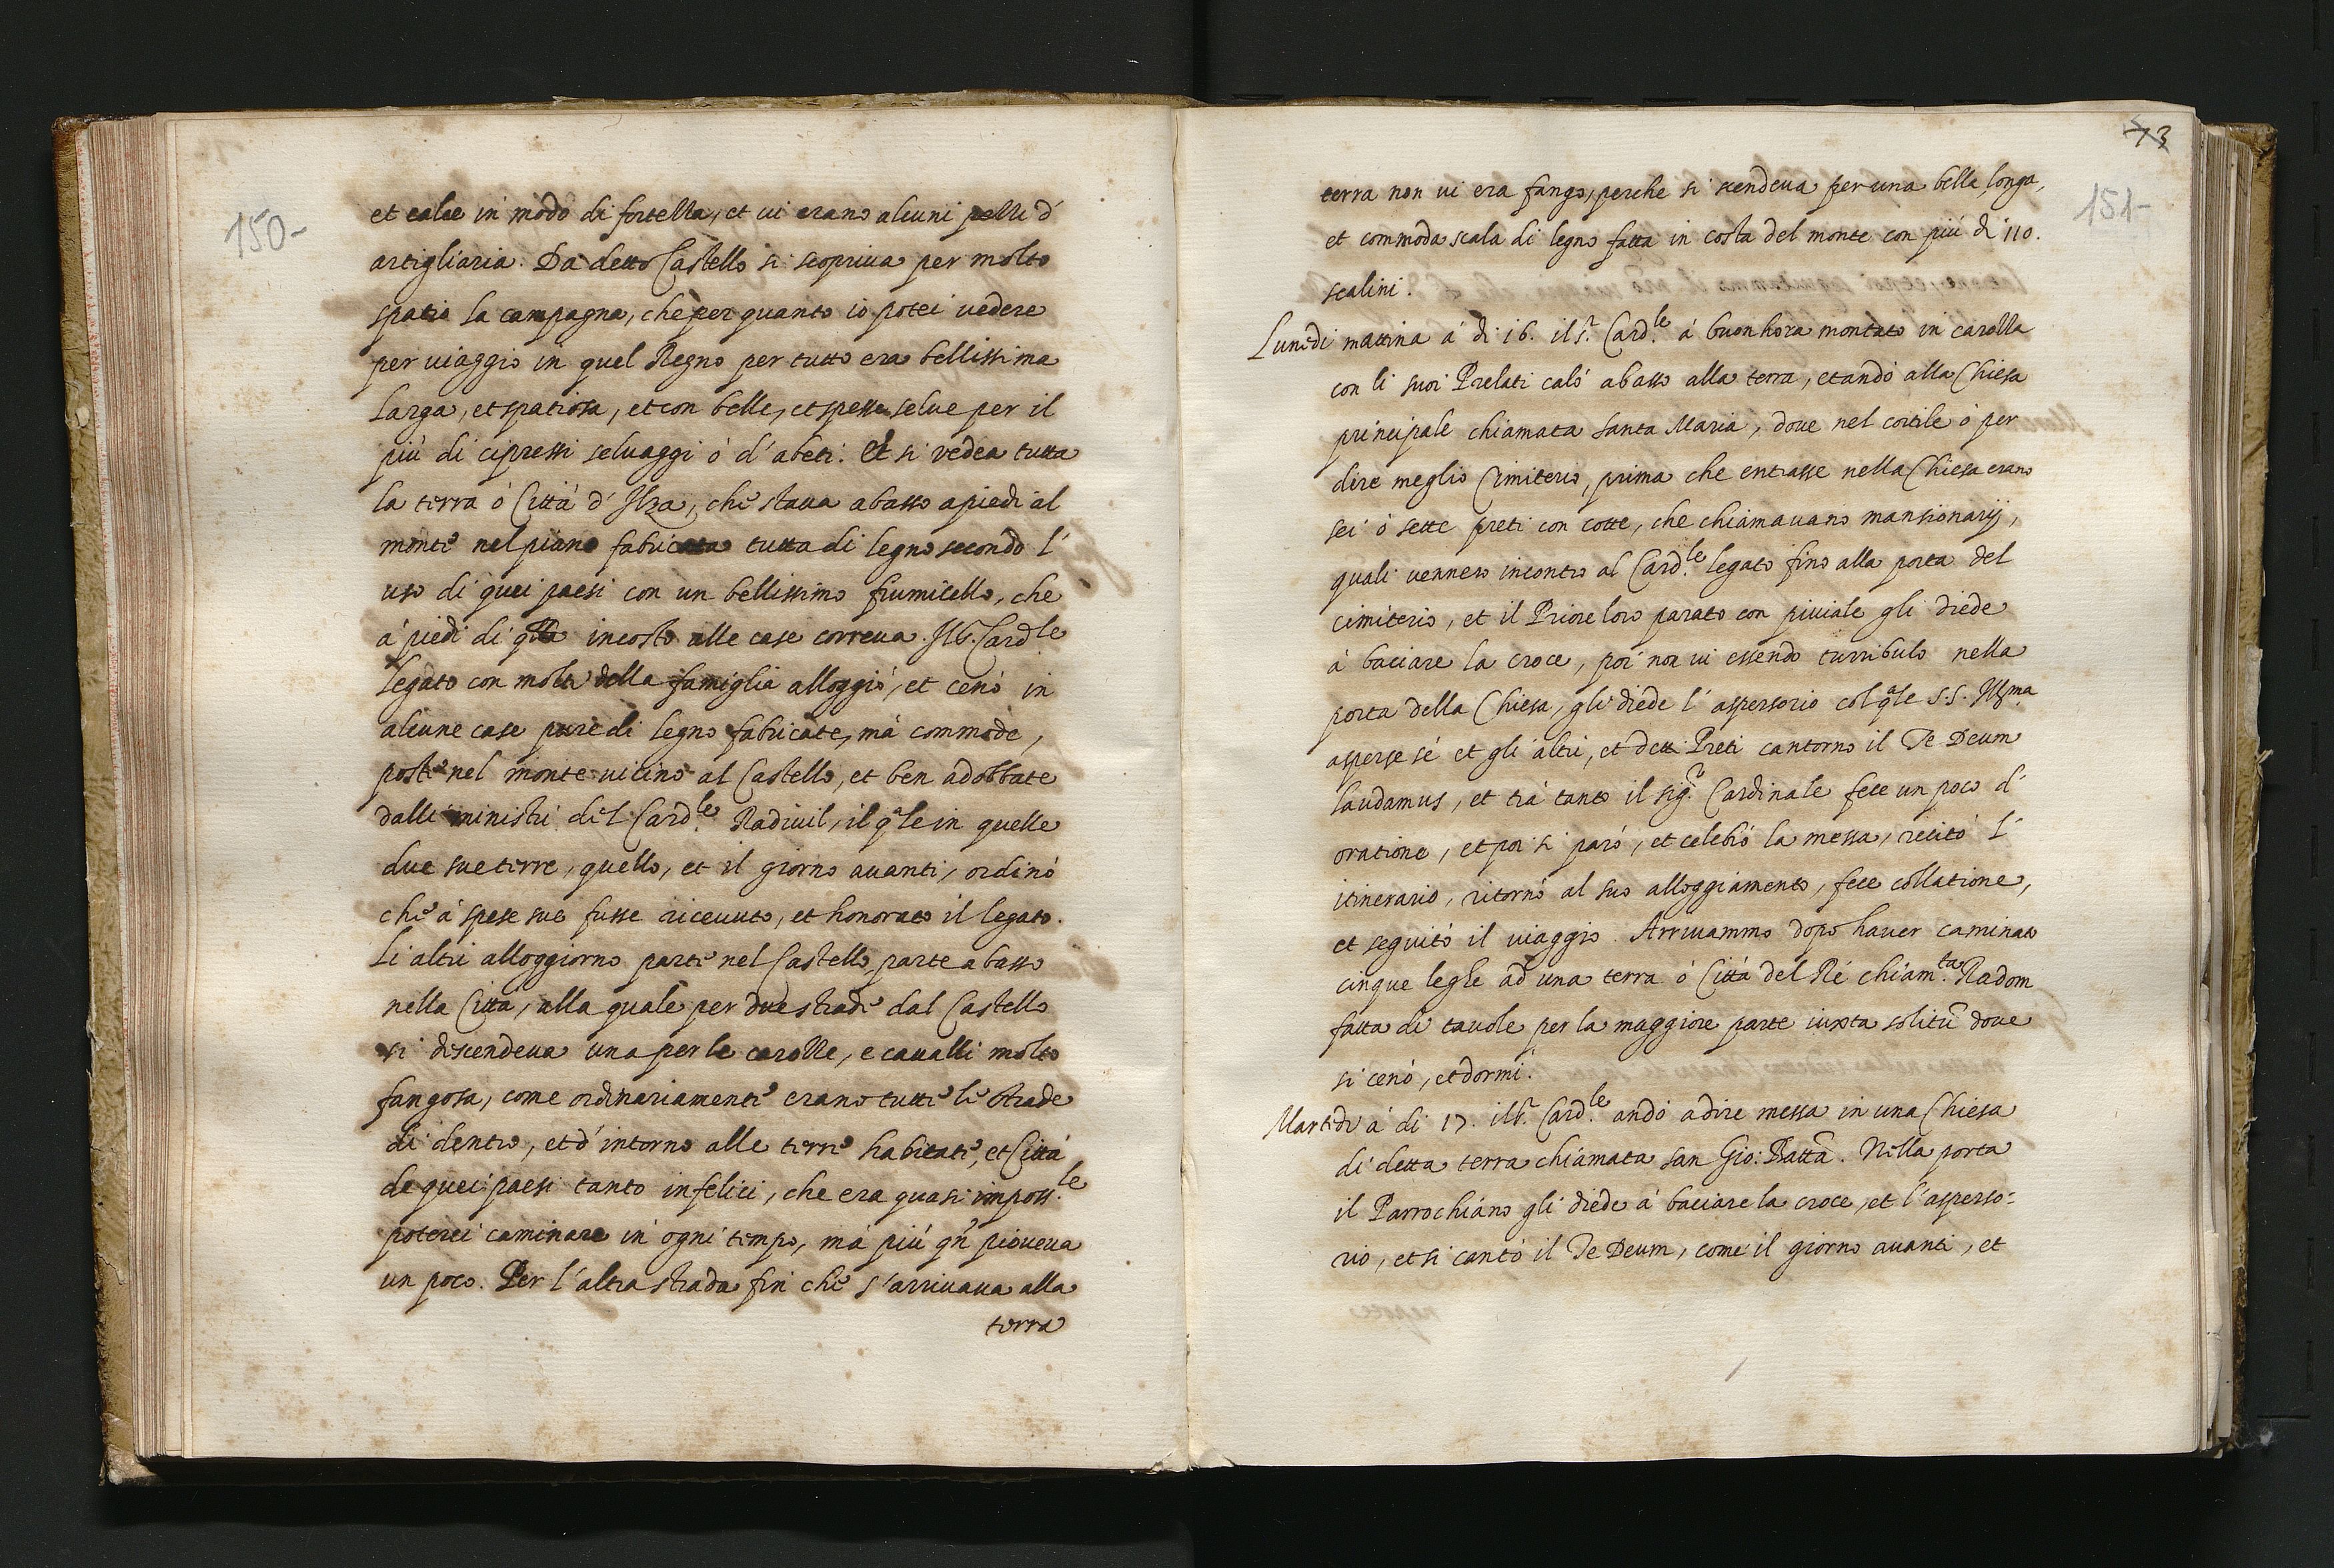 150-
et calce in modo di fortezza, et ui erano alcuni pezzi d'
artigliaria. Da detto Castello si scopriua per molto
spatio la campagna, che per quanto io potei uedere
per uiaggio in quel Regno per tutto era bellissima
larga, et spatiosa, et con belle, et spesse selue per il
più di cipressi seluaggi ò d'abeti. Et si vedea tutta
la terra ò Città d'Ilza, che staua abasso a piedi al
monte nel piano fabricata tutta di legno secondo l'
uso di quei paesi con un bellissimo fiumicello, che
à piedi di incosto alle case correua. Il S.r Card.le
legato con molti della famiglia alloggiò, et cenò in
alcune case pure di legno fabricate, mà commode,
poste nel monte uicino al Castello, et ben adobbate
dalli ministri del Card.le Radiuil, il q.ale in quelle
due sue terre, quello, et il giorno auanti, ordinò
che à spese sue fusse riceuuto, et honorato il legato.
Li altri alloggiorno parte nel Castello, parte abasso
nella Città, alla quale per due strade dal Castello
si descendeua una per le carozze, e caualli molto
fangosa, come ordinariamente erano tutte le strade
di dentro, et d'intorno alle terre habitate, et Città
de quei paesi tanto infelici, che era quasi imposs.le
poterci caminare in ogni tempo, mà più qn̄ pioueua
un poco. Per l'altra strada fin che s'arriuaua alla
terra
73
151-
terra non ui era fango, perche si scendeua per una bella, longa,
et commoda scala di legno fatta in costa del monte con più di 110.
scalini.
Lunedi mattina à di 16. il S.r Card.le à buon hora montato in carozza
con li suoi Prelati calò abasso alla terra, et andò alla Chiesa
principale chiamata Santa Maria, doue nel cortile ò per
dire meglio Cimiterio, prima che entrasse nella Chiesa erano
sei ò sette preti con cotte, che chiamauano mansionarij,
quali uennero incontro al Card.le legato fino alla porta del
cimiterio, et il Priore loro parato con piuiale gli diede
à baciare la croce, poi non ui essendo turribulo nella
porta della Chiesa, gli diede l'aspersorio col q.ale S.S. Ill.ma
asperse sè et gli altri, et detti Preti cantorno il Te Deum
laudamus, et trà tanto il sig.r Cardinale fece un poco d'
oratione, et poi si parò, et celebrò la messa, recitò l'
itinerario, ritornò al suo alloggiamento, fece collatione,
et seguitò il uiaggio. Arriuammo dopo hauer caminato
cinque leghe ad una terra ò Città del Rè chiam.ta Radom
fatta di tauole per la maggiore parte iuxta solitū doue
si cenò, et dormì.
Martedi à di 17. il S.r Card.le andò a dire messa in una Chiesa
di detta terra chiamata san Gio: Batt̃a. Nella porta
il Parrochiano gli diede à baciare la croce, et l'asperso=
rio, et si cantò il Te Deum, come il giorno auanti, et